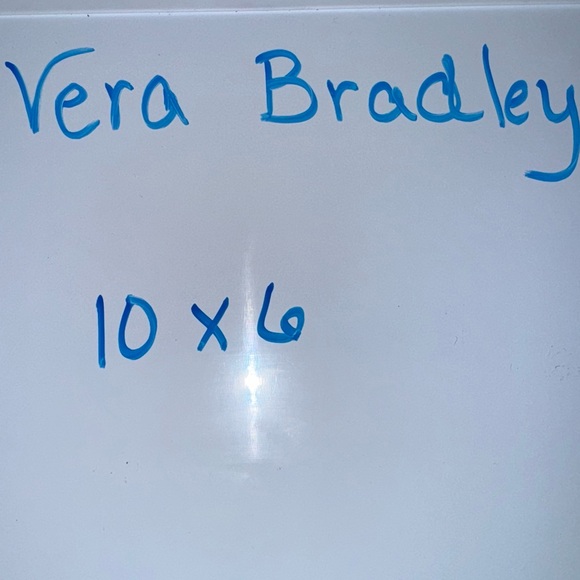 Vera Bradley
10 x 6